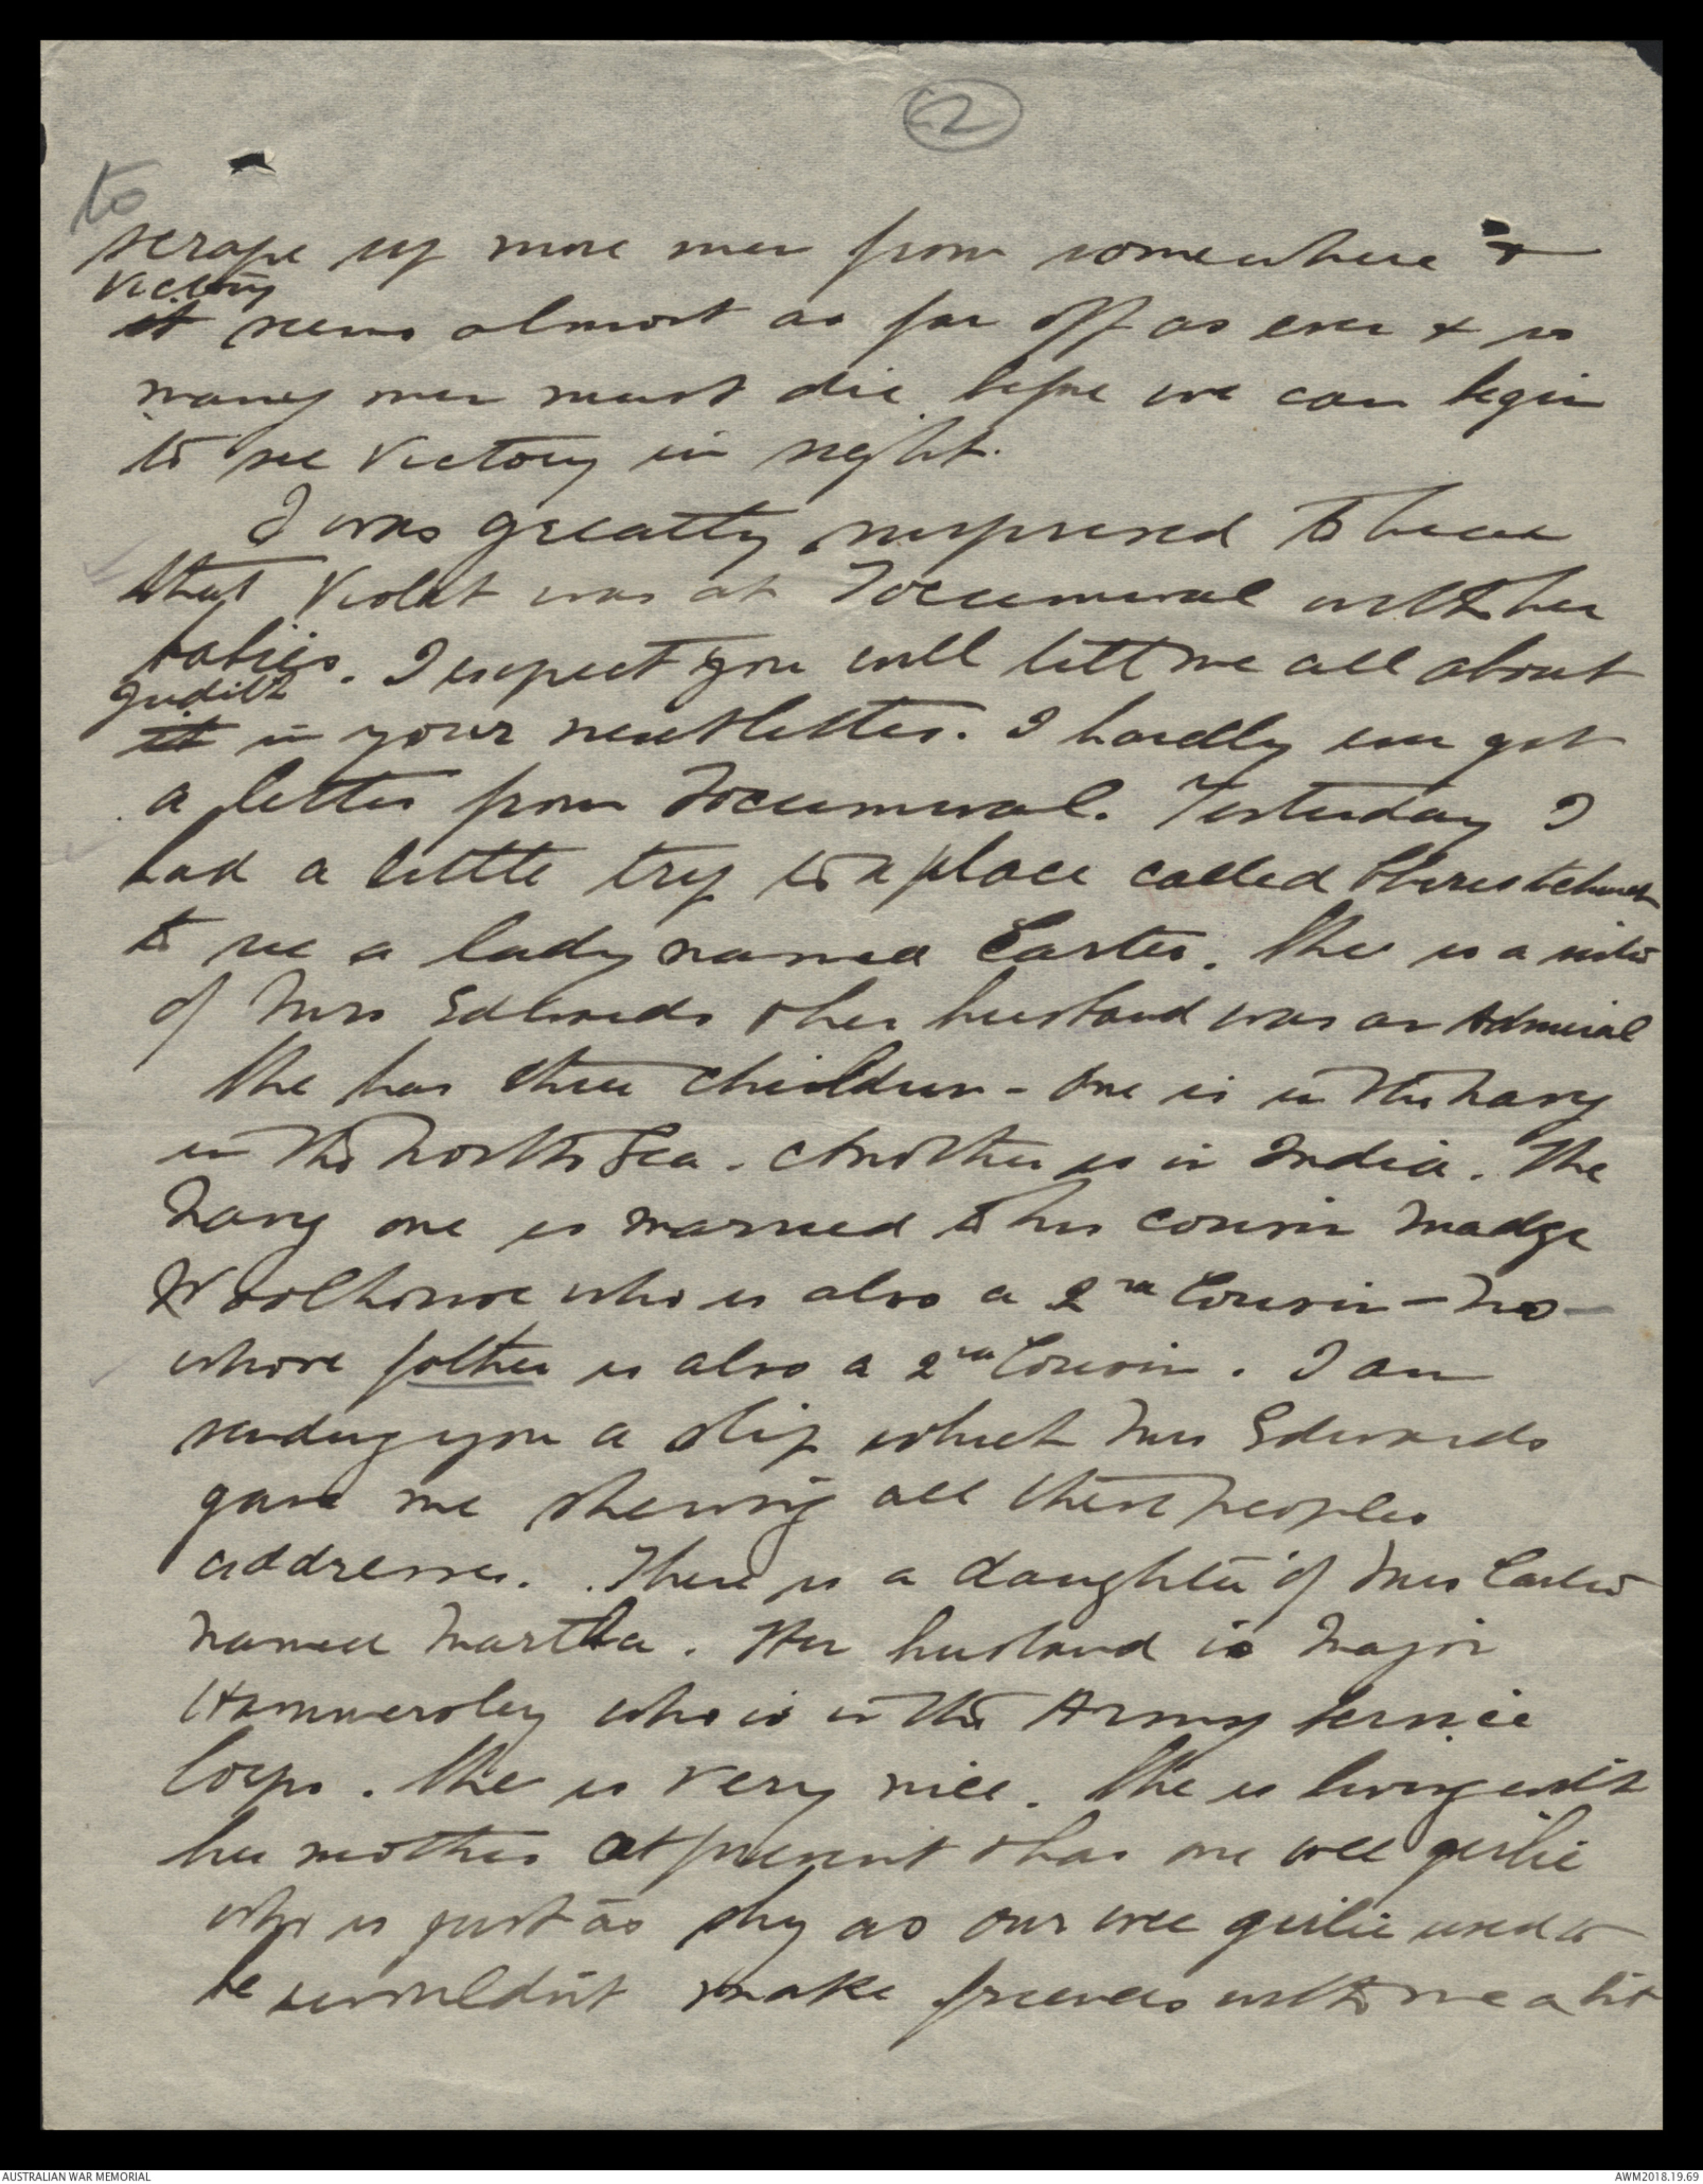 2
to
scrape up more men from somewhere &
Victory
it seems almost as far off as ever & so
many men must die before we can begin
to see Victory in sight.
I was greatly surprised to hear
that Violet was at Tocumwal with her
babies. I expect you will tell me all about
Judith
it in your next letter. I hardly ever get
a letter from Tocumwal. Yesterday I
had a little trip to a place called Christchurch
to see a lady named Carter. She is a sister
of Mrs Edwards & her husband was an Admiral
She has three children - One is in the Navy
in the North Sea. Another is in India. The
Navy one is married to his cousin Madge
Woolhouse who is also a 2nd Cousin - No -
whose father is also a 2nd Cousin. I am
sending you a slip which Mrs Edwards
gave me shewing all these peoples
addresses. There is a daughter of Mrs Carter
named Martha. Her husband is Major
Hammersley who is in the Army Service
Corps. She is very nice. She is living with
her mother at present & has one wee girlie
who is just as shy as our wee girlie used to
be & wouldn't make friends with me a bit
AUSTRALIAN WAR MEMORIAL
AWM2018.19.69